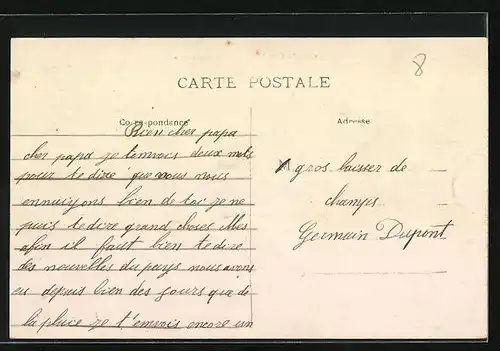 8
CARTE POSTALE
Correspondance
Adresse
Bien cher papa
cher papa je t'envois deux mots
pour te dire que vous nous
ennuiyons bien de toi je ne
puis te dire grand choses Mes
afin il faut bien te dire
des nouvelles du pays nous avons
eu depuis bien des jours que de
la pluie je t'envois encore un
M gros baisser de
champs
Germain Dupont